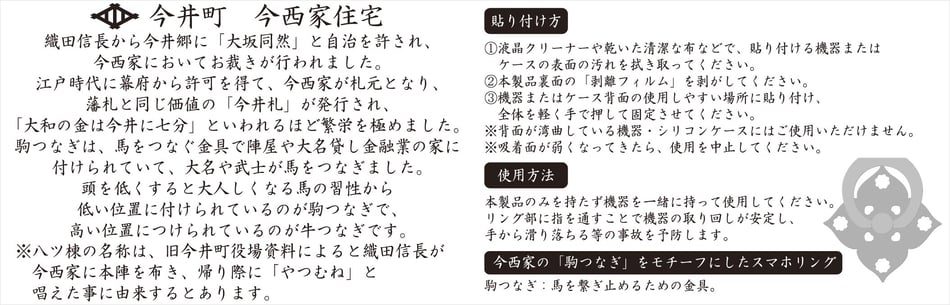 今井町 今西家住宅
織田信長から今井郷に「大坂同然」と自治を許され、
今西家においてお裁きが行われました。
江戸時代に幕府から許可を得て、今西家が札元となり、
藩札と同じ価値の「今井札」が発行され、
「大和の金は今井に七分」といわれるほど繁栄を極めました。
駒つなぎは、馬をつなぐ金具で陣屋や大名貸し金融業の家に
付けられていて、大名や武士が馬をつなぎました。
頭を低くすると大人しくなる馬の習性から
低い位置に付けられているのが駒つなぎで、
高い位置につけられているのが牛つなぎです。
※八ツ棟の名称は、旧今井町役場資料によると織田信長が
今西家に本陣を布き、帰り際に「やつむね」と
唱えた事に由来するとあります。
貼り付け方
①液晶クリーナーや乾いた清潔な布などで、貼り付ける機器または
ケースの表面の汚れを拭き取ってください。
②本製品裏面の「剥離フィルム」を剥がしてください。
③機器またはケース背面の使用しやすい場所に貼り付け、
全体を軽く手で押して固定させてください。
※背面が湾曲している機器・シリコンケースにはご使用いただけません。
※吸着面が弱くなってきたら、使用を中止してください。
使用方法
本製品のみを持たず機器を一緒に持って使用してください。
リング部に指を通すことで機器の取り回しが安定し、
手から滑り落ちる等の事故を予防します。
今西家の「駒つなぎ」をモチーフにしたスマホリング
駒つなぎ：馬を繋ぎ止めるための金具。